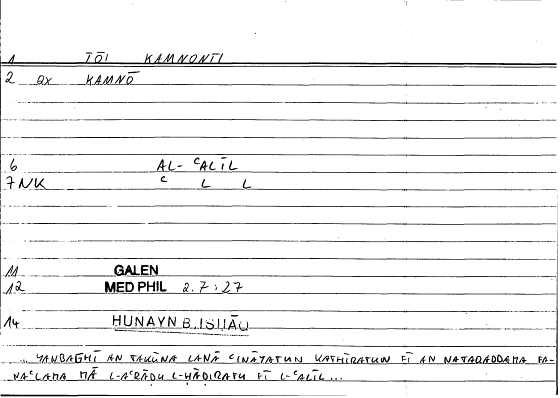 1 TŌI KAMNONTI
2 Qx KAMNŌ
6 AL- ᶜALĪL
7 NK ᶜ L L
11 GALEN
12 MED PHIL 2.7:27
14 ḤUNAYN B. ISḤĀQ
... YANBAGHĪ AN TAKŪNA LANĀ ᶜINĀYATUN KATHĪRATUN FĪ AN NATAQADDAMA FA-
NAᶜLAMA MĀ L-AᶜRĀḌU L-ḤĀḌIRATU FĪ L-ᶜALĪL ...